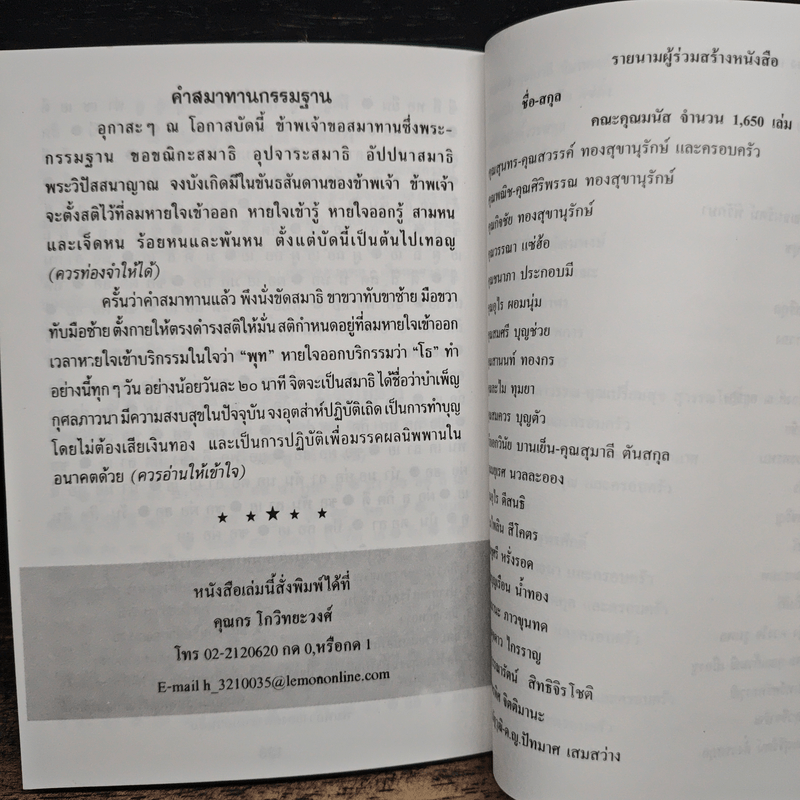 คำสมาทานกรรมฐาน
อุกาสะๆ ณ โอกาสบัดนี้ ข้าพเจ้าขอสมาทานซึ่งพระ-
กรรมฐาน ขอขณิกะสมาธิ อุปจาระสมาธิ อัปปนาสมาธิ
พระวิปัสสนาญาณ จงบังเกิดมีในขันธสันดานของข้าพเจ้า ข้าพเจ้า
จะตั้งสติไว้ที่ลมหายใจเข้าออก หายใจเข้ารู้ หายใจออกรู้ สามหน
และเจ็ดหน ร้อยหนและพันหน ตั้งแต่บัดนี้เป็นต้นไปเทอญ
(ควรท่องจำให้ได้)
ครั้นว่าคำสมาทานแล้ว พึงนั่งขัดสมาธิ ขาขวาทับขาซ้าย มือขวา
ทับมือซ้าย ตั้งกายให้ตรงดำรงสติให้มั่น สติกำหนดอยู่ที่ลมหายใจเข้าออก
เวลาหายใจเข้าบริกรรมในใจว่า “พุท” หายใจออกบริกรรมว่า “โธ” ทำ
อย่างนี้ทุกๆ วัน อย่างน้อยวันละ ๒๐ นาที จิตจะเป็นสมาธิ ได้ชื่อว่าบำเพ็ญ
กุศลภาวนา มีความสงบสุขในปัจจุบัน จงอุตส่าห์ปฏิบัติเถิด เป็นการทำบุญ
โดยไม่ต้องเสียเงินทอง และเป็นการปฏิบัติเพื่อมรรคผลนิพพานใน
อนาคตด้วย (ควรอ่านให้เข้าใจ)
หนังสือเล่มนี้สั่งพิมพ์ได้ที่
คุณกร โกวิทยะวงศ์
โทร 02-2120620 กด 0,หรือกด 1
E-mail h_3210035@lemononline.com
รายนามผู้ร่วมสร้างหนังสือ
ชื่อ-สกุล
คณะคุณมนัส จำนวน 1,650 เล่ม
คุณสุนทร-คุณสวรรค์ ทองสุขานุรักษ์ และครอบครัว
คุณพณิช-คุณศิริพรรณ ทองสุขานุรักษ์
คุณกิจชัย ทองสุขานุรักษ์
คุณวรรณา แซ่ฮ้อ
ประกอบมี
ผอมนุ่ม
บุญช่วย
ทองกร
ทุมยา
บุญตัว
บานเย็น-คุณสุมาลี ตันสกุล
นวลละออง
ดีสนธิ
สีโคตร
หรั่งรอด
น้ำทอง
ภาวขุนทด
ไกรราญ
สิทธิจิรโชติ
จิตติมานะ
ด.ญ.ปัทมาศ เสมสว่าง